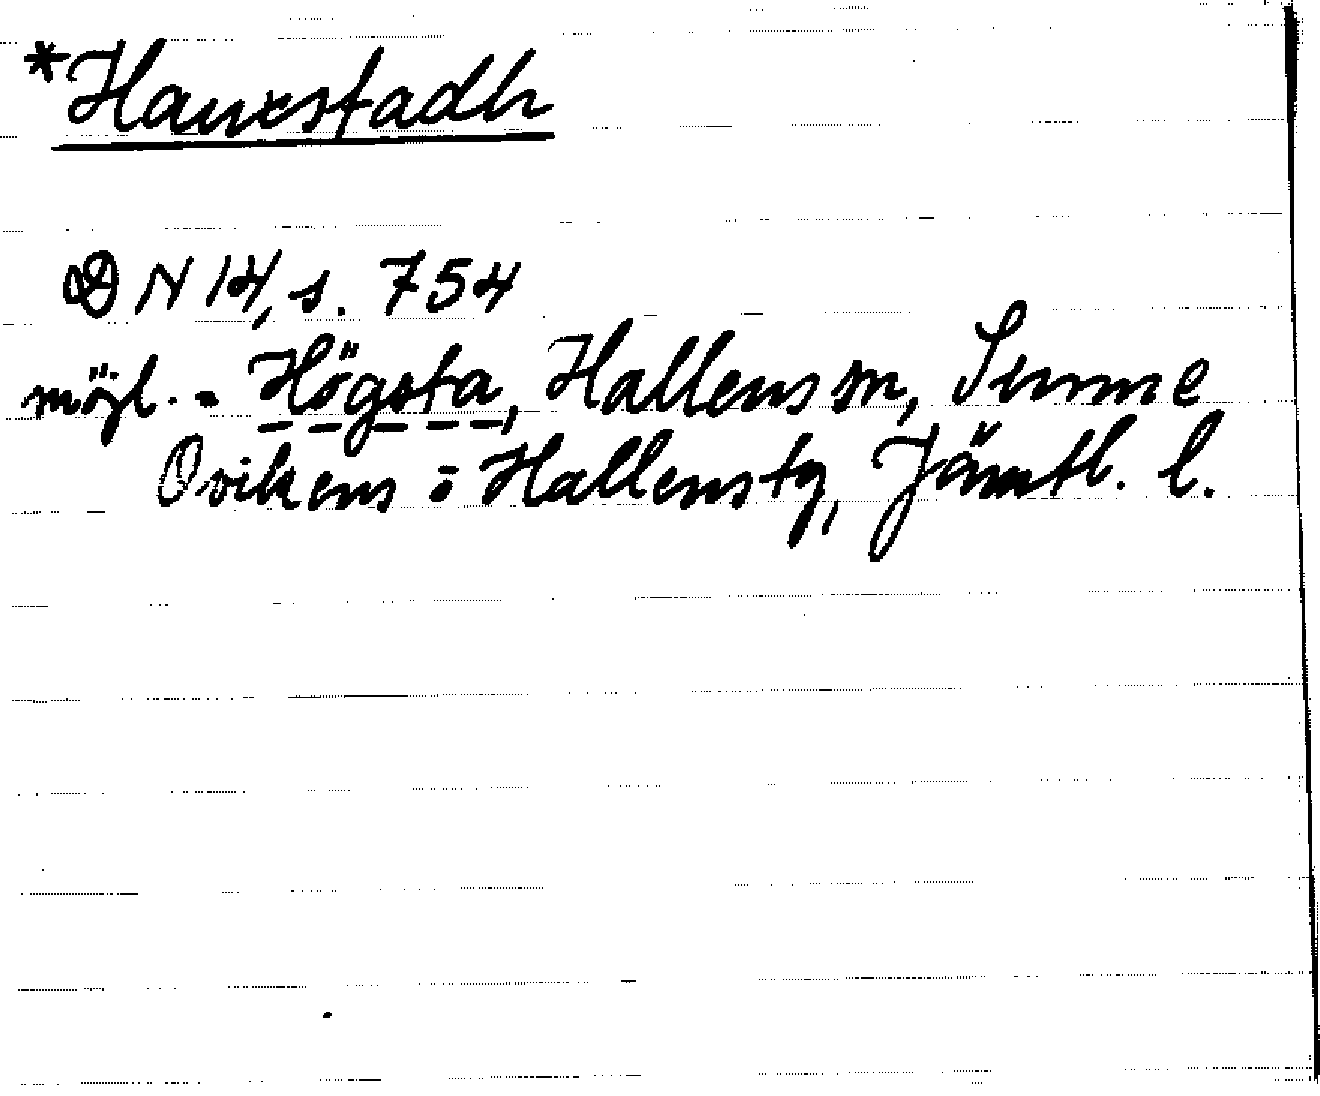 *Hauxstadh
DN 14, s. 754
möjl. = Högsta, Hallens sn, Sunne
Ovikens o Hallens tg, Jämtl. l.